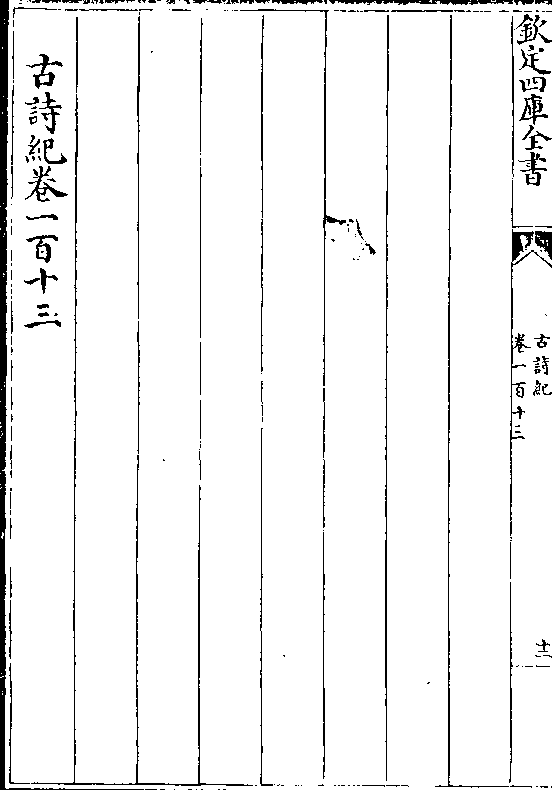 欽定四庫全書
古詩紀
卷一百十三
十二
古詩紀卷一百十三